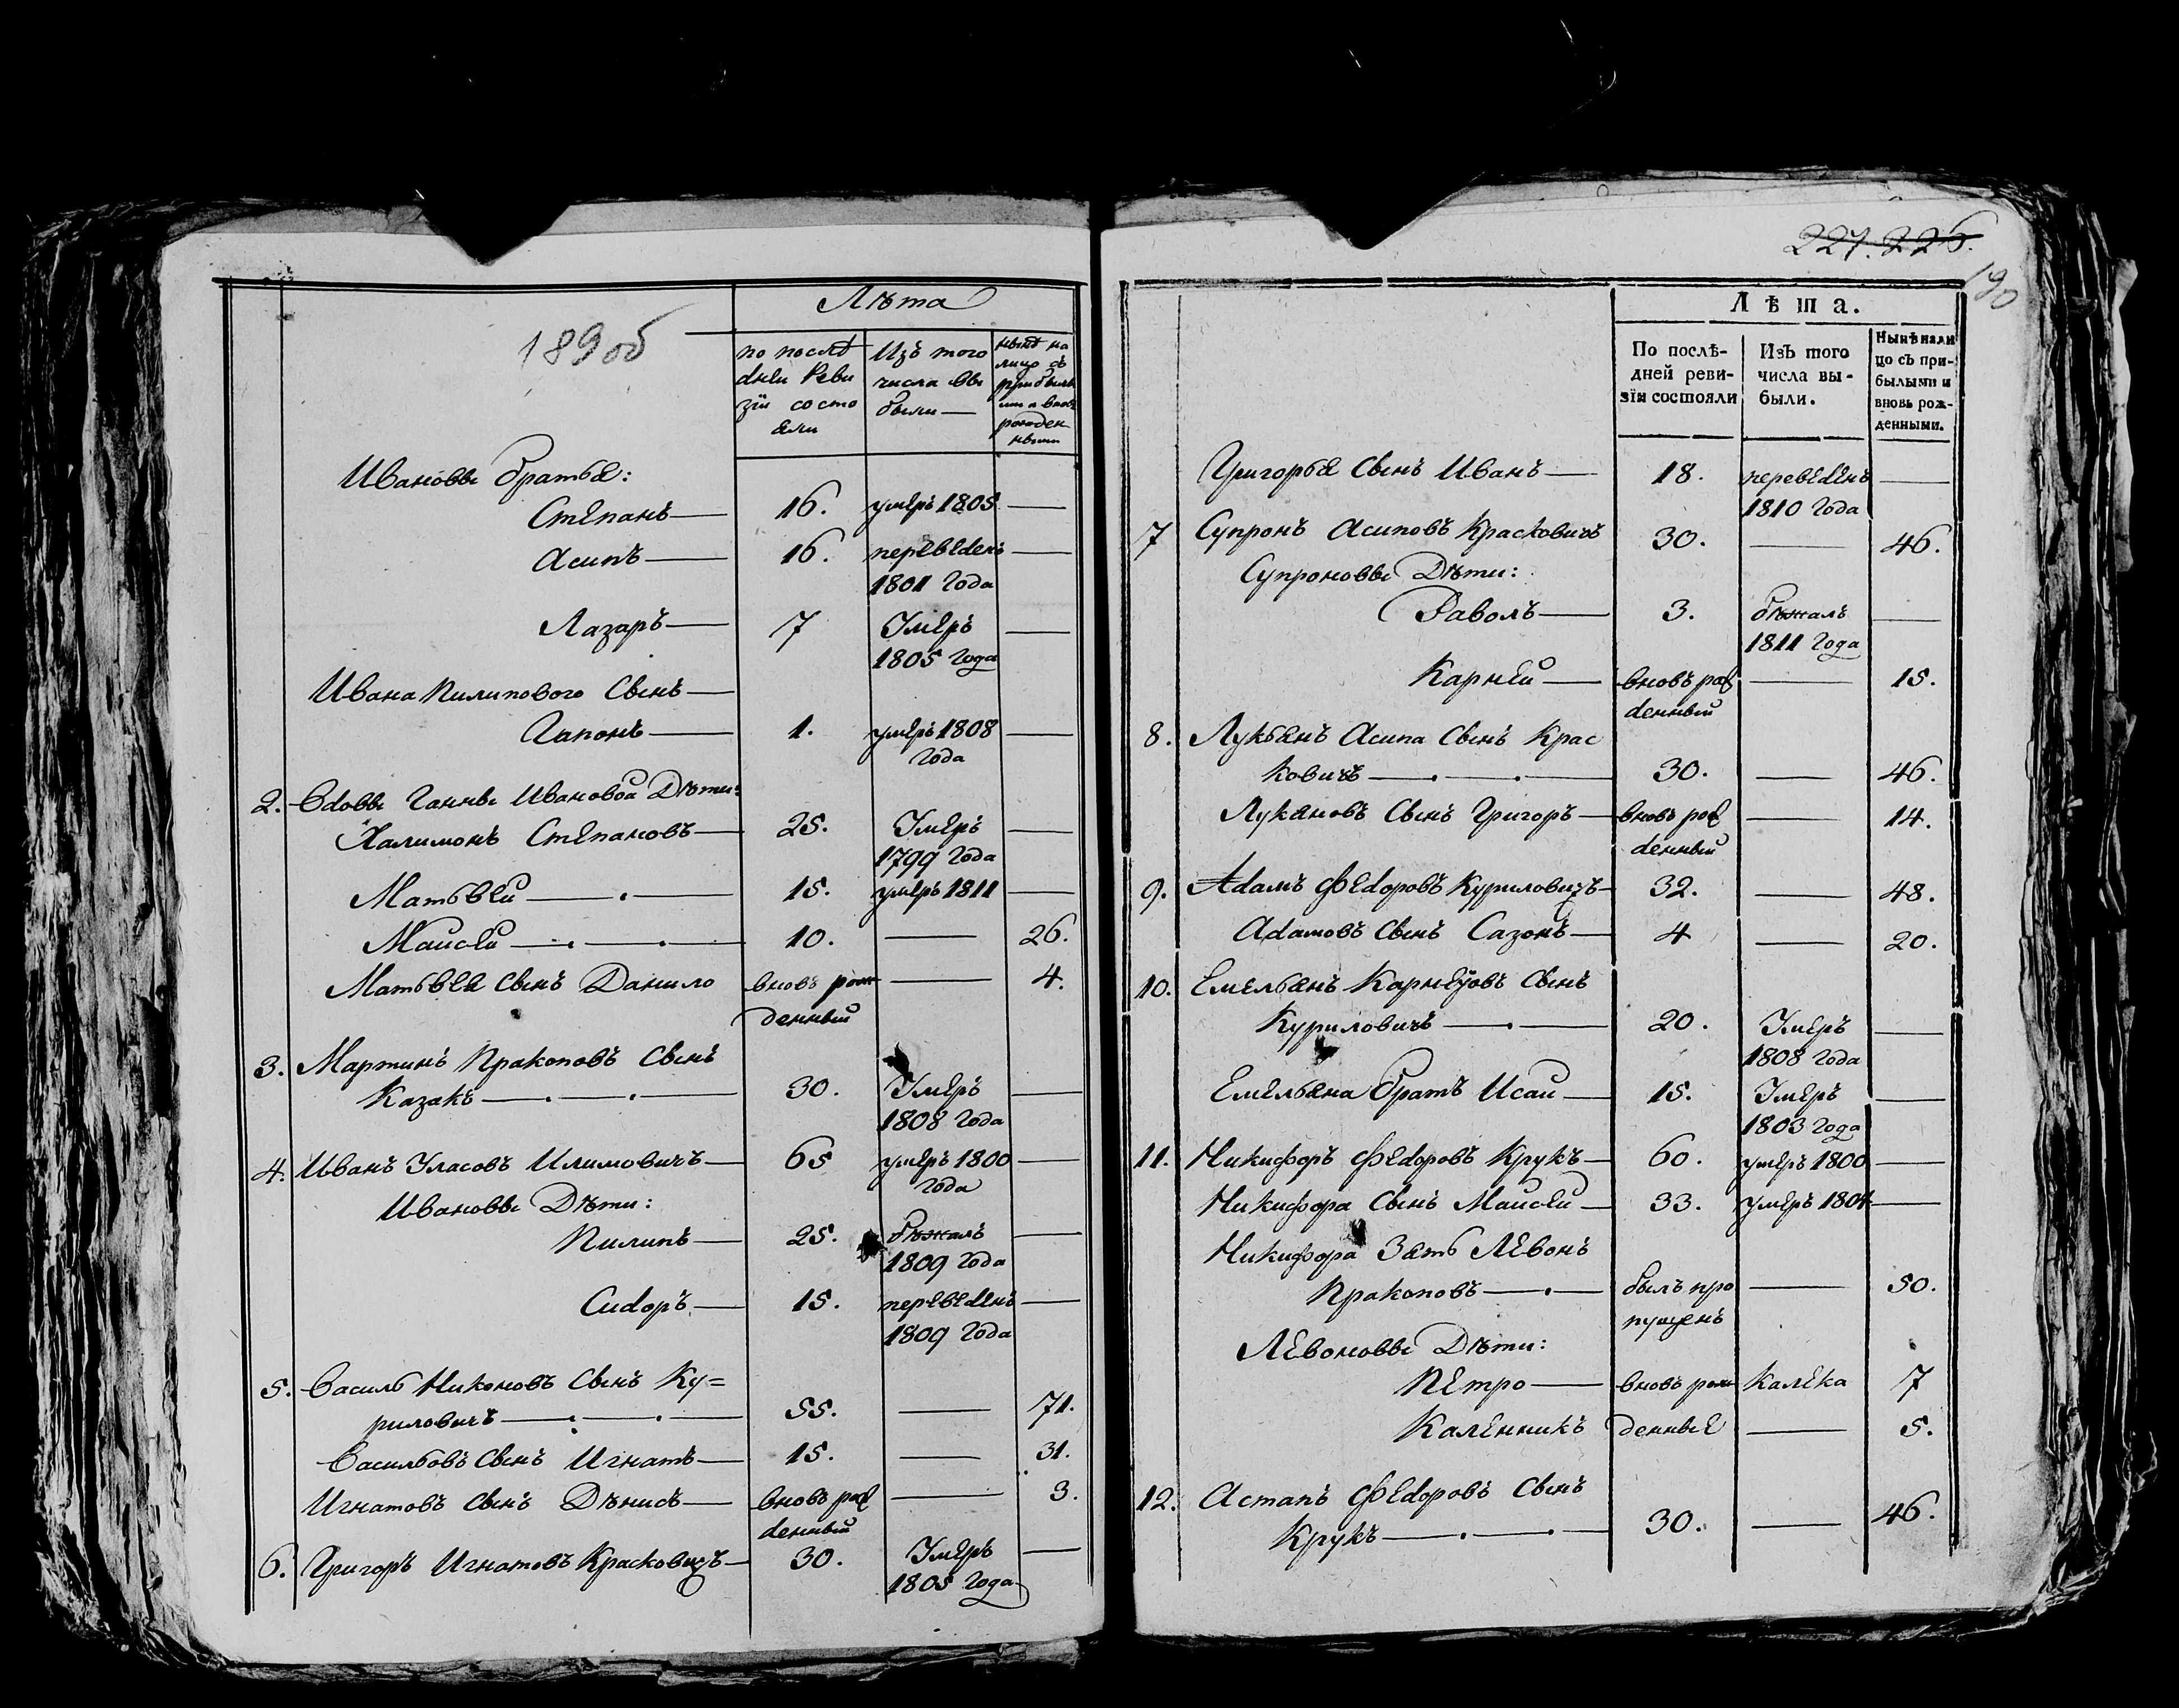 189 об
Лѣта
по послѣ
дней Реви
зїи состо
яли
Изъ того
числа вы
были —
нынѣ на
лицо съ
прибылы
ми и вновь
рожден
ными
Ивановы братья:
Степанъ — 16. умеръ 1805 —
Асипъ — 16. переведенъ —
1801 года
Лазаръ — 7 Умеръ —
1805 года
Ивана Пилипового сынъ —
Гапонъ — 1. умеръ 1808 —
года
2. Вдовы Ганны Ивановой Дѣти:
Халимонъ Степановъ — 25. Умеръ —
1799 года
Матьвей — . — 15. умеръ 1811 —
Маисей — . — . — 10. — 26.
Матьвея сынъ Данило вновь рож — 4.
денный
3. Мартинъ Пракоповъ сынъ
Казакъ — . — . — 30. Умеръ —
1808 года
4. Иванъ Уласовъ Илимовичъ — 65 умеръ 1800 —
года
Ивановы Дѣти:
Пилипъ — 25. бѣжалъ —
1809 года
Сидоръ — 15. переведенъ —
1809 года
5. Василь Никоновъ сынъ Ку=
риловичъ — . — . — 55. — 71.
Васильовъ сынъ Игнатъ — 15. — 31.
Игнатовъ сынъ Дѣнисъ — вновь рож — 3.
денный
6. Григоръ Игнатовъ Красковичъ — 30. Умеръ —
1805 года
227. 226.
190
Лѣта.
По послѣ-
дней реви-
зїи состояли
Изъ того
числа вы-
были.
Нынѣ нали
цо съ при-
былыми и
вновь рож-
денными.
Григорья сынъ Иванъ — 18. переведенъ —
1810 года
7 Супронъ Асиповъ Красковичъ 30. — 46.
Супроновы Дѣти:
Паволъ — 3. бѣжалъ —
1811 года
Карней — вновь рож — 15.
денный
8. Лукьянъ Асипа сынъ Крас
ковичъ — . — . — 30. — 46.
Лукяновъ сынъ Григоръ — вновь рож — 14.
денный
9. Адамъ Федоровъ Куриловичъ — 32. — 48.
Адамовъ сынъ Сазонъ — 4 — 20.
10. Емельянъ Карнеювъ сынъ
Куриловичъ — . — 20. Умеръ —
1808 года
Емельяна братъ Исаи — 15. Умеръ —
1803 года
11. Никифоръ Федоровъ Крукъ — 60. умеръ 1800 —
Никифора сынъ Маисей — 33. умеръ 1804 —
Никифора Зять Левонъ
Пракоповъ — . — былъ про — 50.
пущенъ
Левоновы Дѣти:
Петро — вновь рож Калека 7
Каленникъ денные — 5.
12. Астапъ Федоровъ сынъ
Крукъ — . — . — 30. — 46.